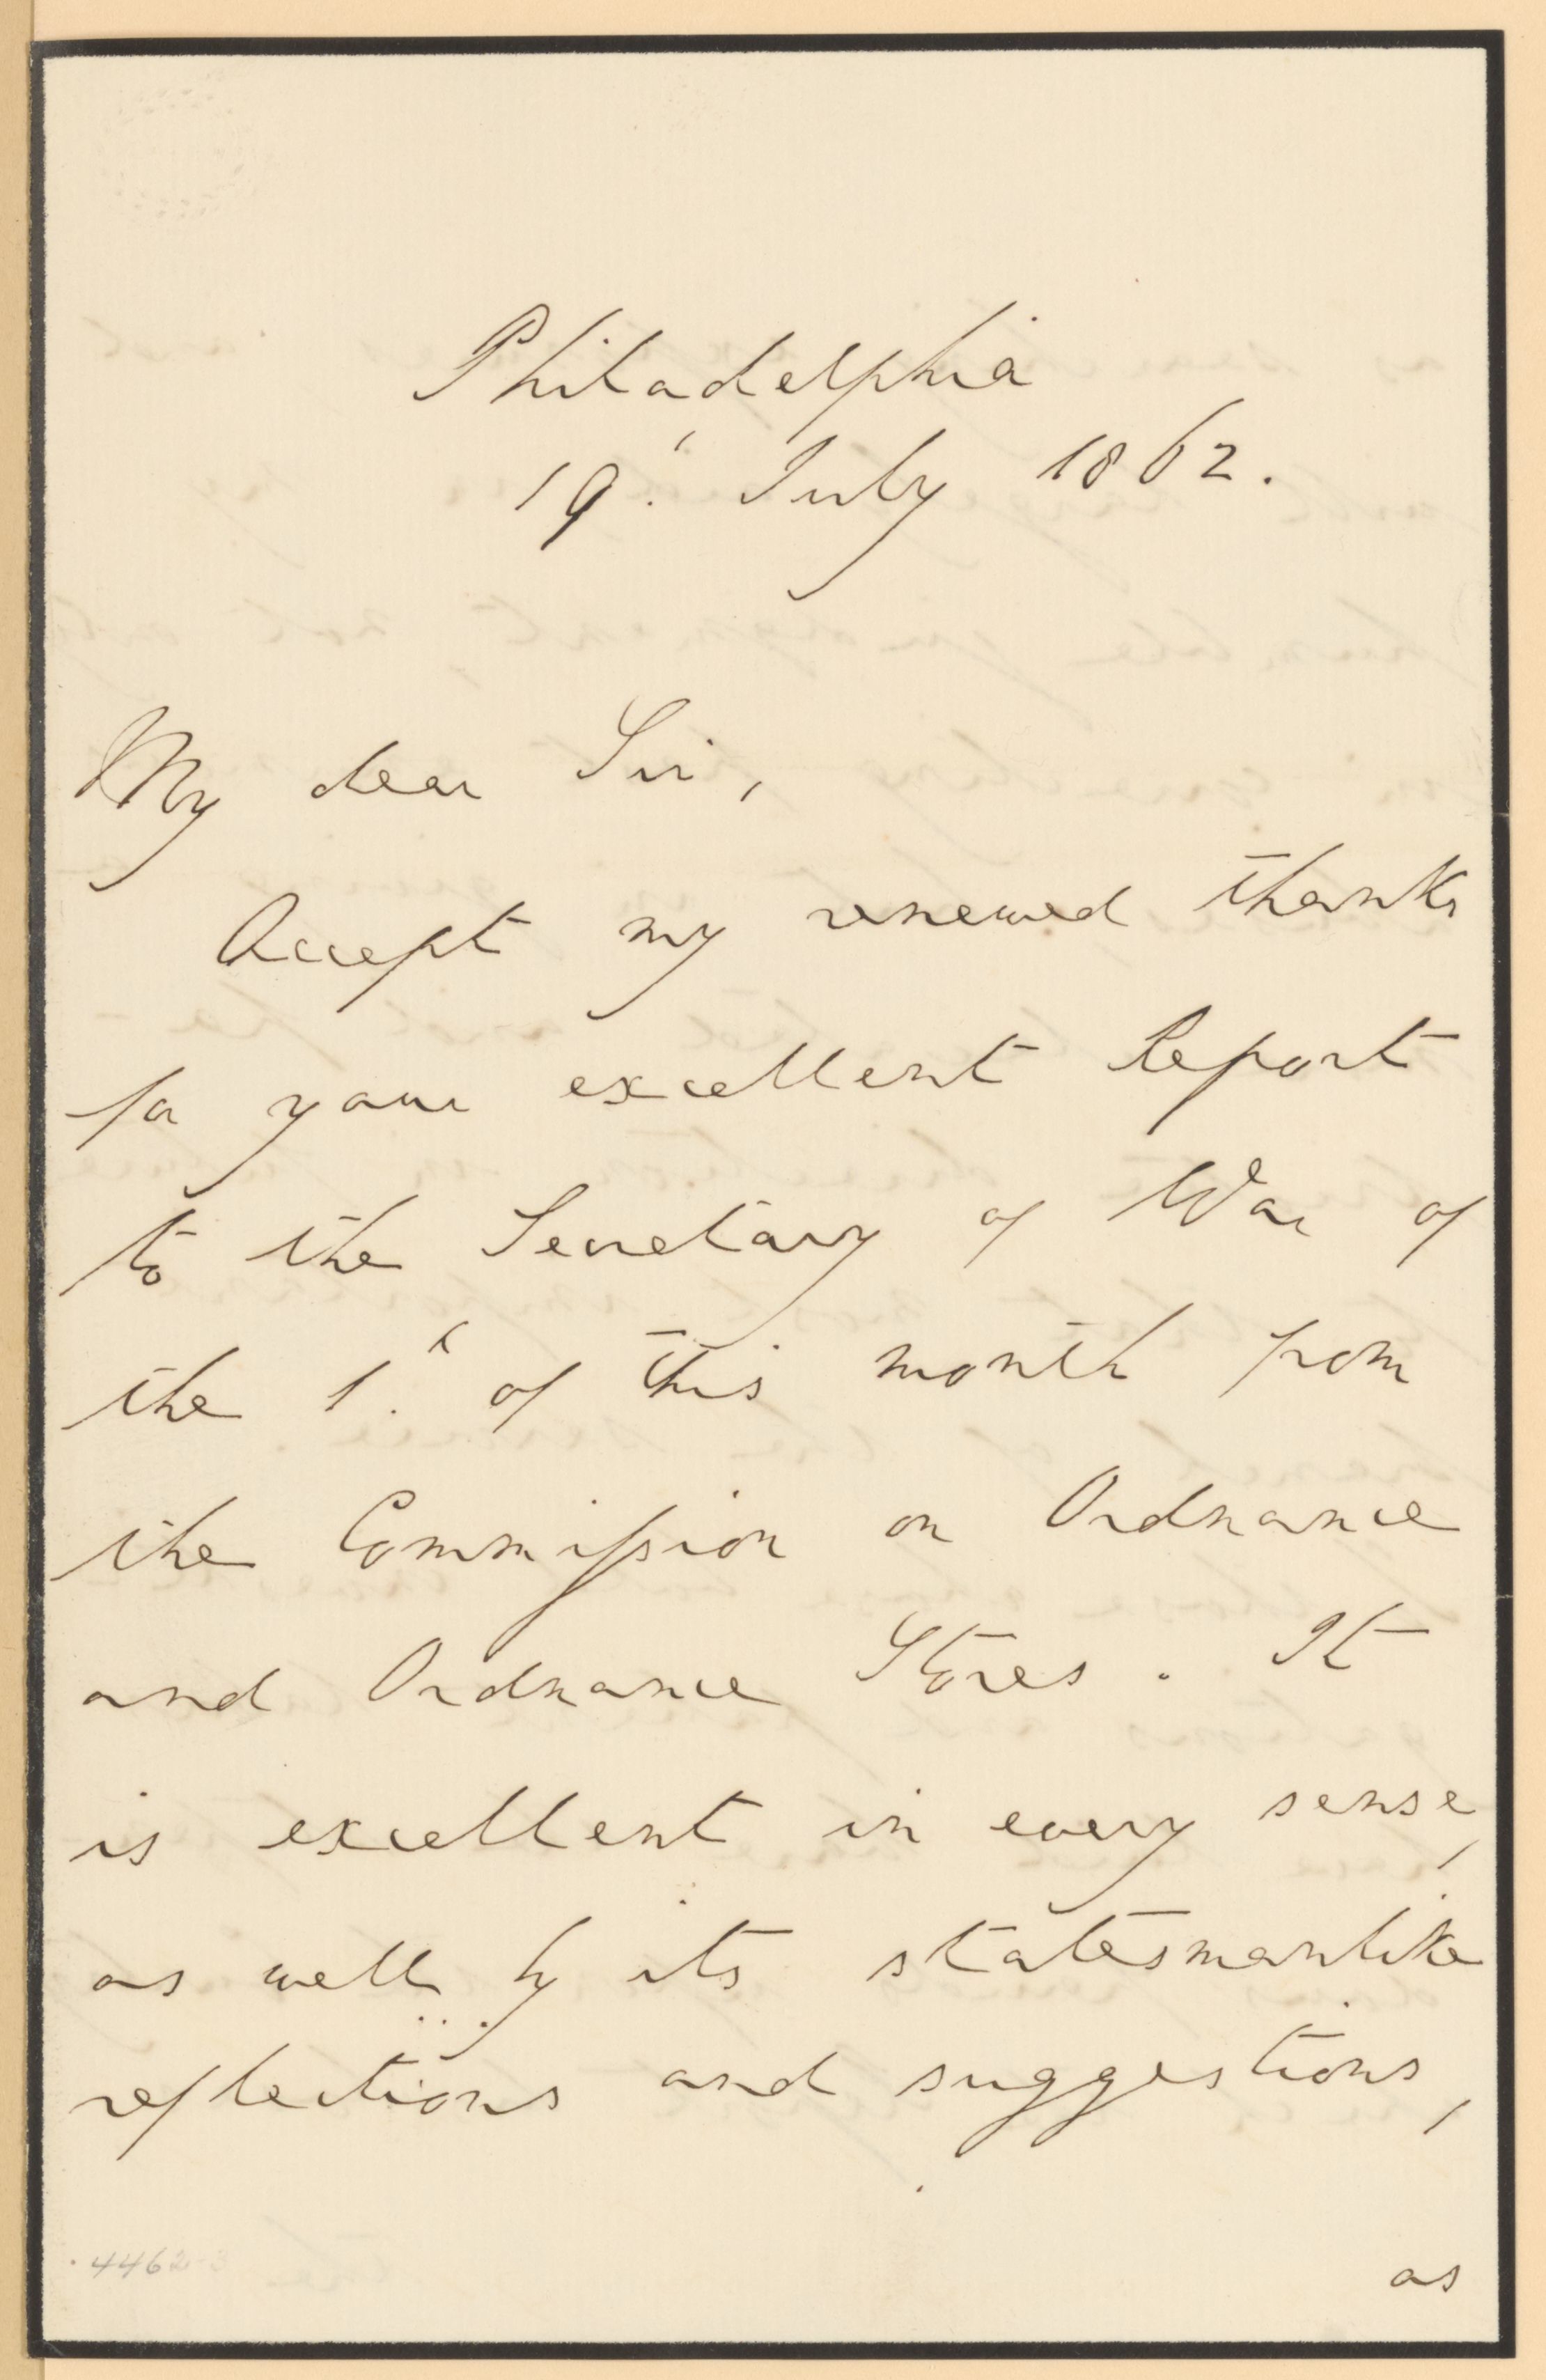 Philadelphia
19' July 1862.
My dear Sir,
Accept my renewed thanks
for your excellent Report
to the Secretary of War of
the 1st. of this month from
the Commission on Ordnance
and Ordnance Stores. It
is excellent in every sense,
as well by its statesmanlike
reflections and suggestions,
as